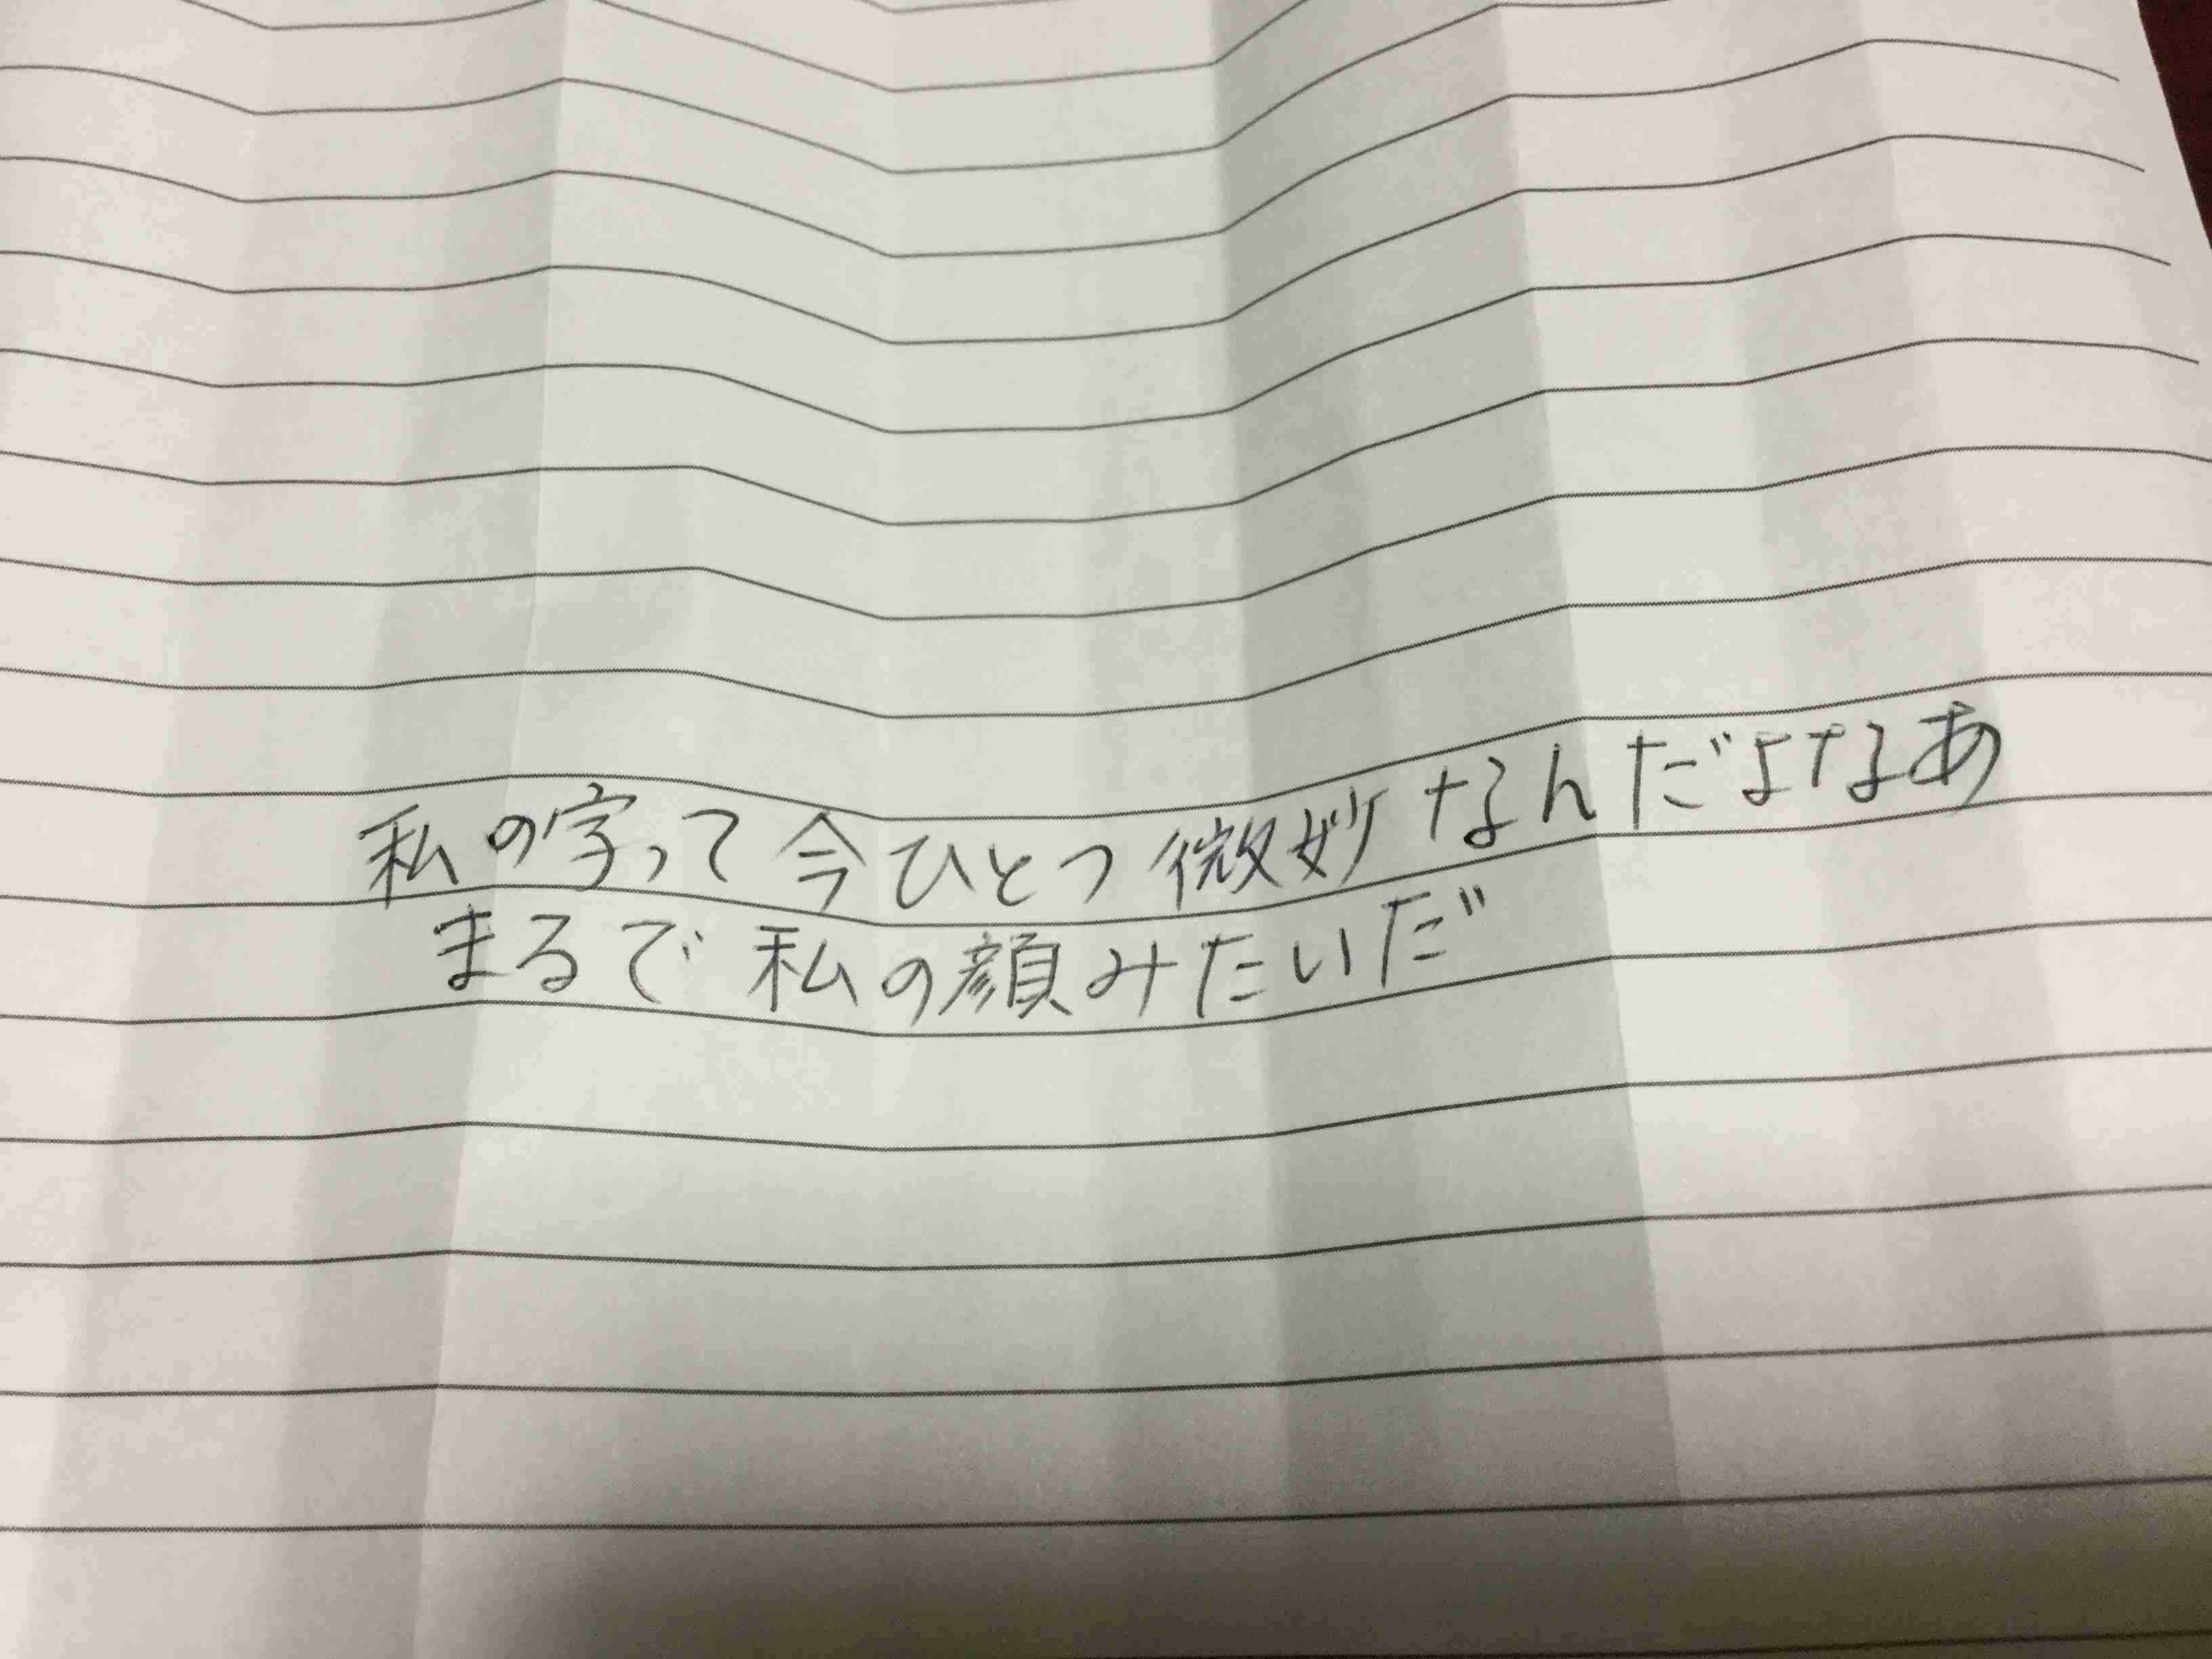 私の字って今ひとつ微妙なんだよなあ
まるで私の顔みたいだ